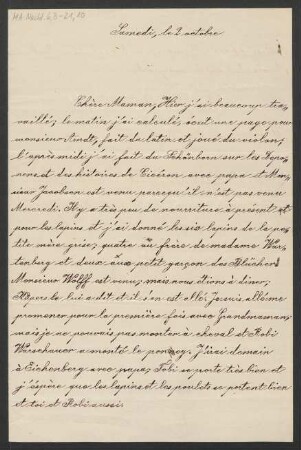 MA Nachl. 43-21,10
Samedi, le 2 octobre
Chère Maman, Hier, j'ai beaucoup tra-
vaillé; le matin j'ai calculé, écrit une page pour
monsieur Arndt, fait du latin et joué du violon;
l'après midi j'ai fait du Schönborn sur les
et des histoires de Cicéron avec papa et Mon-
sieur Jacobson est venu parcequ'il n'est pas venu
Mercredi. Il y a très peu de nourriture à présent et
pour les lapins et j'ai donné les six lapins de la pe-
tite mère grise; quatre au frère de madame
et deux aux petit garçon des Blücher
Monsieur Wolff est venu; mais nous étions à diner;
lui a dit et il s'en est allé. Je suis allé me
promener pour la première fois avec Grandmaman;
mais je ne pouvais pas monter à cheval et Robi
Warschauer a monté le poney. J'irai demain
à Eichenberg avec papa. Tobi se porte très bien et
j'espère que les lapins et les poulets se portent bien
et toi et Robi aussi.